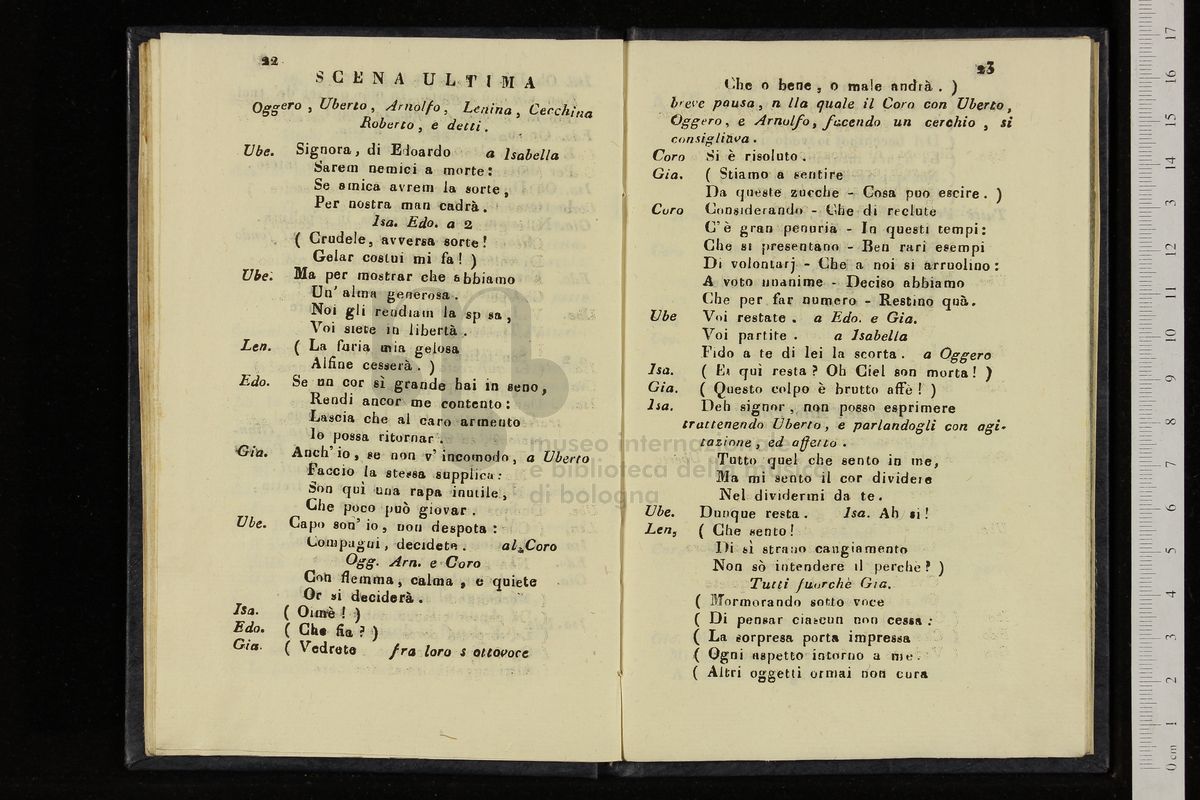 22
SCENA ULTIMA
Oggero, Uberto, Arnolfo, Lenina, Cecchina
Roberto, e detti.
Ube. Signora, di Edoardo a Isabella
Sarem nemici a morte:
Se amica avrem la sorte,
Per nostra man cadrà.
Isa. Edo. a 2
( Crudele, avversa sorte!
Gelar costui mi fa! )
Ube. Ma per mostrar che abbiamo
Un' alma generosa.
Noi gli rendiam la sp sa,
Voi siete in libertà.
Len. ( La furia mia gelosa
Alfine cesserà. )
Edo. Se un cor sì grande hai in seno,
Rendi ancor me contento:
Lascia che al caro armento
Io possa ritornar.
Gia. Anch' io, se non v' incomodo, a Uberto
Faccio la stessa supplica:
Son quì una rapa inutile,
Che poco può giovar.
Ube. Capo son' io, non despota:
Compagni, decidete. al Coro
Ogg. Arn. e Coro
Con flemma, calma, e quiete
Or si deciderà.
Isa. ( Oimè! )
Edo. ( Che fia? )
Gia. ( Vedrete fra loro s ottovoce
23
Che o bene, o male andrà. )
breve pausa, n lla quale il Coro con Uberto,
Oggero, e Arnolfo, facendo un cerchio, si
consigliava.
Coro Si è risoluto.
Gia. ( Stiamo a sentire
Da queste zucche - Cosa può escire. )
Coro Considerando - Che di reclute
C'è gran penuria - In questi tempi:
Che si presentano - Ben rari esempi
Di volontarj - Che a noi si arruolino:
A voto unanime - Deciso abbiamo
Che per far numero - Restino quà.
Ube Voi restate. a Edo. e Gia.
Voi partite. a Isabella
Fido a te di lei la scorta. a Oggero
Isa. ( Ei quì resta? Oh Ciel son morta! )
Gia. ( Questo colpo è brutto affè! )
Isa. Deh signor, non posso esprimere
trattenendo Uberto, e parlandogli con agi-
tazione, ed affetto.
Tutto quel che sento in me,
Ma mi sento il cor dividere
Nel dividermi da te.
Ube. Dunque resta. Isa. Ah si!
Len, ( Che sento!
Di sì strano cangiamento
Non sò intendere il perchè? )
Tutti fuorchè Gia.
( Mormorando sotto voce
( Di pensar ciascun non cessa:
( La sorpresa porta impressa
( Ogni aspetto intorno a me.
( Altri oggetti ormai non cura
museo internazionale
e biblioteca della musica
di bologna
0 cm 1 2 3 4 5 6 7 8 9 10 11 12 13 14 15 16 17